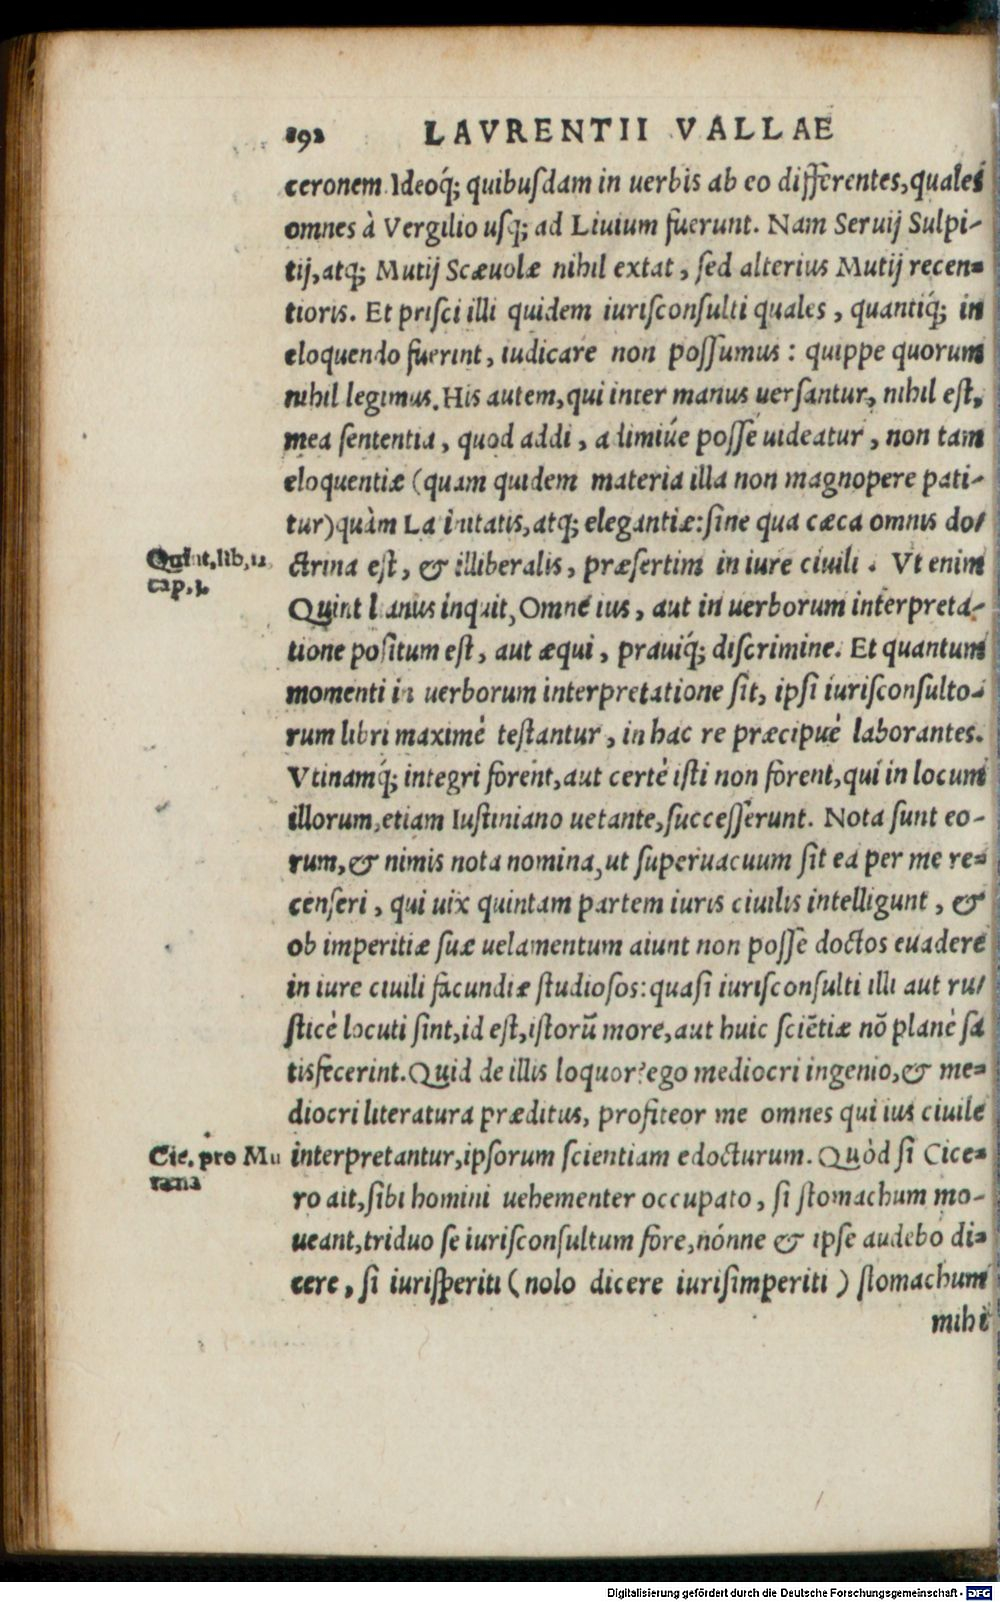 192 LAVRENTII VALLAE
ceronem Ideoq́; quibuſdam in uerbis ab eo differentes, quales
omnes à Vergilio uſq; ad Liuium fuerunt. Nam Seruij Sulpi-
tij, atq; Mutij Scæuolæ nihil extat, ſed alterius Mutij recen=
tioris. Et priſci illi quidem iuriſconſulti quales, quantiq́; in
eloquendo fuerint, iudicare non poſſumus: quippe quorum
nihil legimus. His autem, qui inter manus uerſantur, nihil eſt,
mea ſententia, quod addi, adimiúe poſſe uideatur, non tam
eloquentiæ (quam quidem materia illa non magnopere pati-
tur) quàm Latinitatis, atq; elegantiæ: ſine qua cæca omnis do/
Quint. lib. 12
cap. 3.
ctrina eſt, & illiberalis, præſertim in iure ciuili. Vt enim
Quintilianus inquit, Omne ius, aut in uerborum interpreta-
tione poſitum eſt, aut æqui, prauiq́; diſcrimine. Et quantum
momenti in uerborum interpretatione ſit, ipſi iuriſconſulto-
rum libri maximè teſtantur, in hac re præcipuè laborantes.
Vtinamq́; integri forent, aut certè iſti non forent, qui in locum
illorum, etiam Iuſtiniano uetante, ſucceſſerunt. Nota ſunt eo-
rum, & nimis nota nomina, ut ſuperuacuum ſit ea per me re=
cenſeri, qui uix quintam partem iuris ciuilis intelligunt, &
ob imperitiæ ſuæ uelamentum aiunt non poſſe doctos euadere
in iure ciuili facundiæ ſtudioſos: quaſi iuriſconſulti illi aut ru/
ſticè locuti ſint, id eſt, iſtorū more, aut huic ſciētiæ nō planè ſa
tisfecerint. Quid de illis loquor? ego mediocri ingenio, & me=
diocri literatura præditus, profiteor me omnes qui ius ciuile
Cic. pro Mu
rana
interpretantur, ipſorum ſcientiam edocturum. Quòd ſi Cice=
ro ait, ſibi homini uehementer occupato, ſi ſtomachum mo-
ueant, triduo ſe iuriſconſultum fore, nónne & ipſe audebo di=
cere, ſi iuriſperiti (nolo dicere iuriſimperiti) ſtomachum
mihi
Digitalisierung gefördert durch die Deutsche Forschungsgemeinschaft - DFG